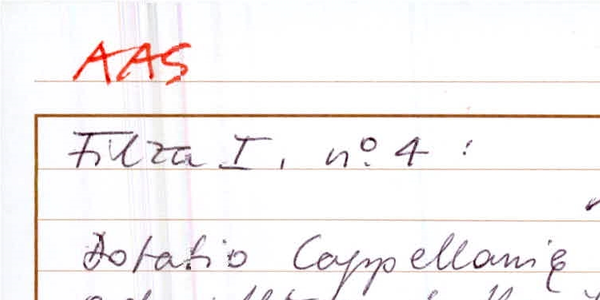 AAS
Filza I, nº. 4 :
Dotatio Cappellanię